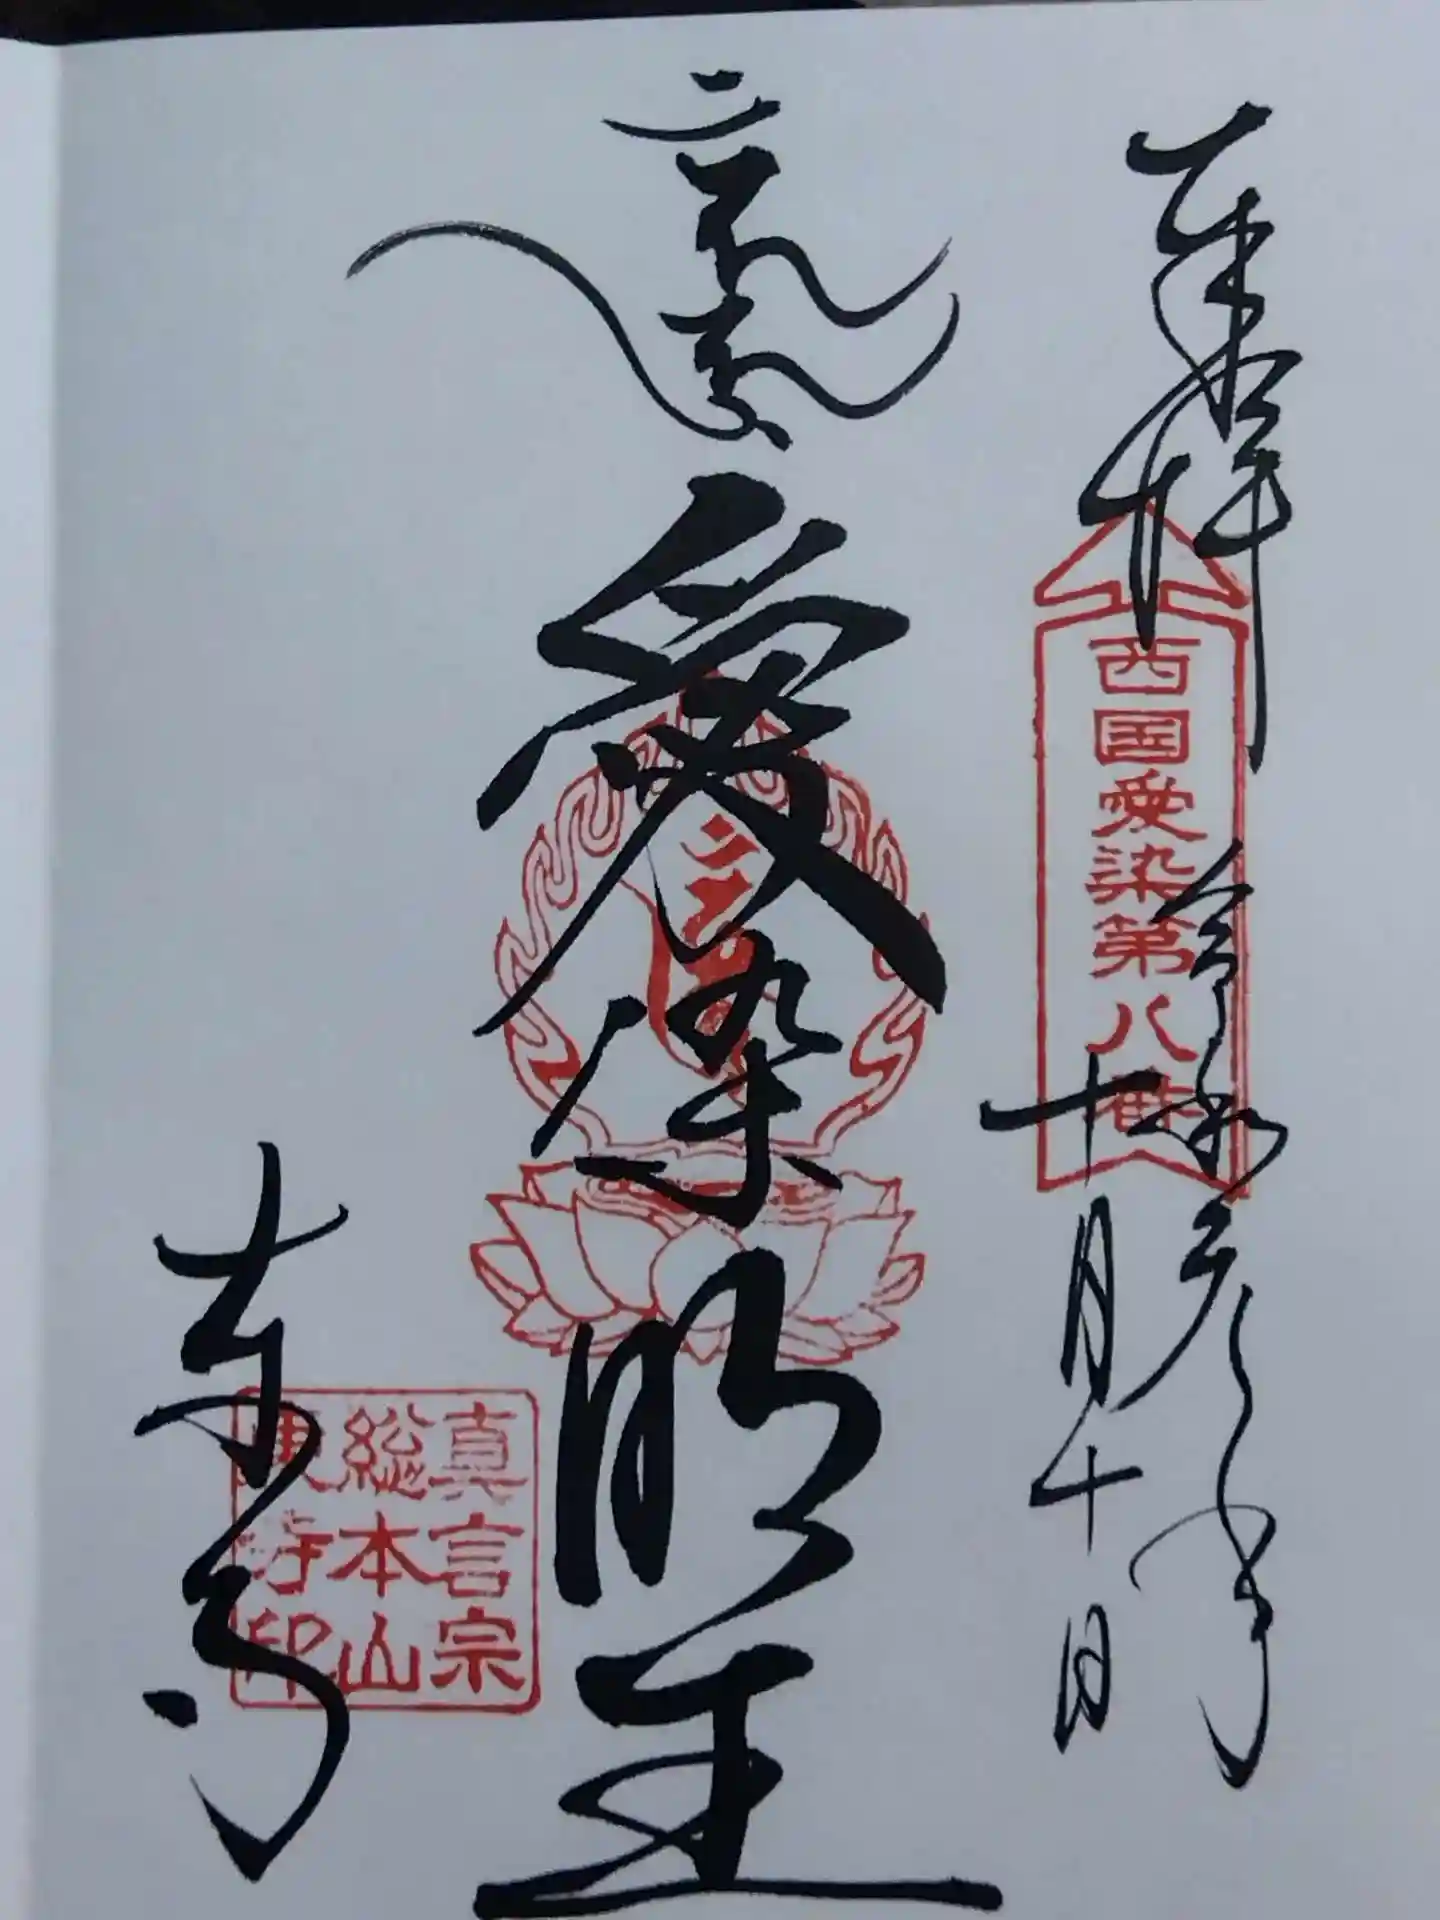 奉拝
西国愛染第八番
令和年
十月十日
愛染明王
東寺
真言宗
総本山
東寺印